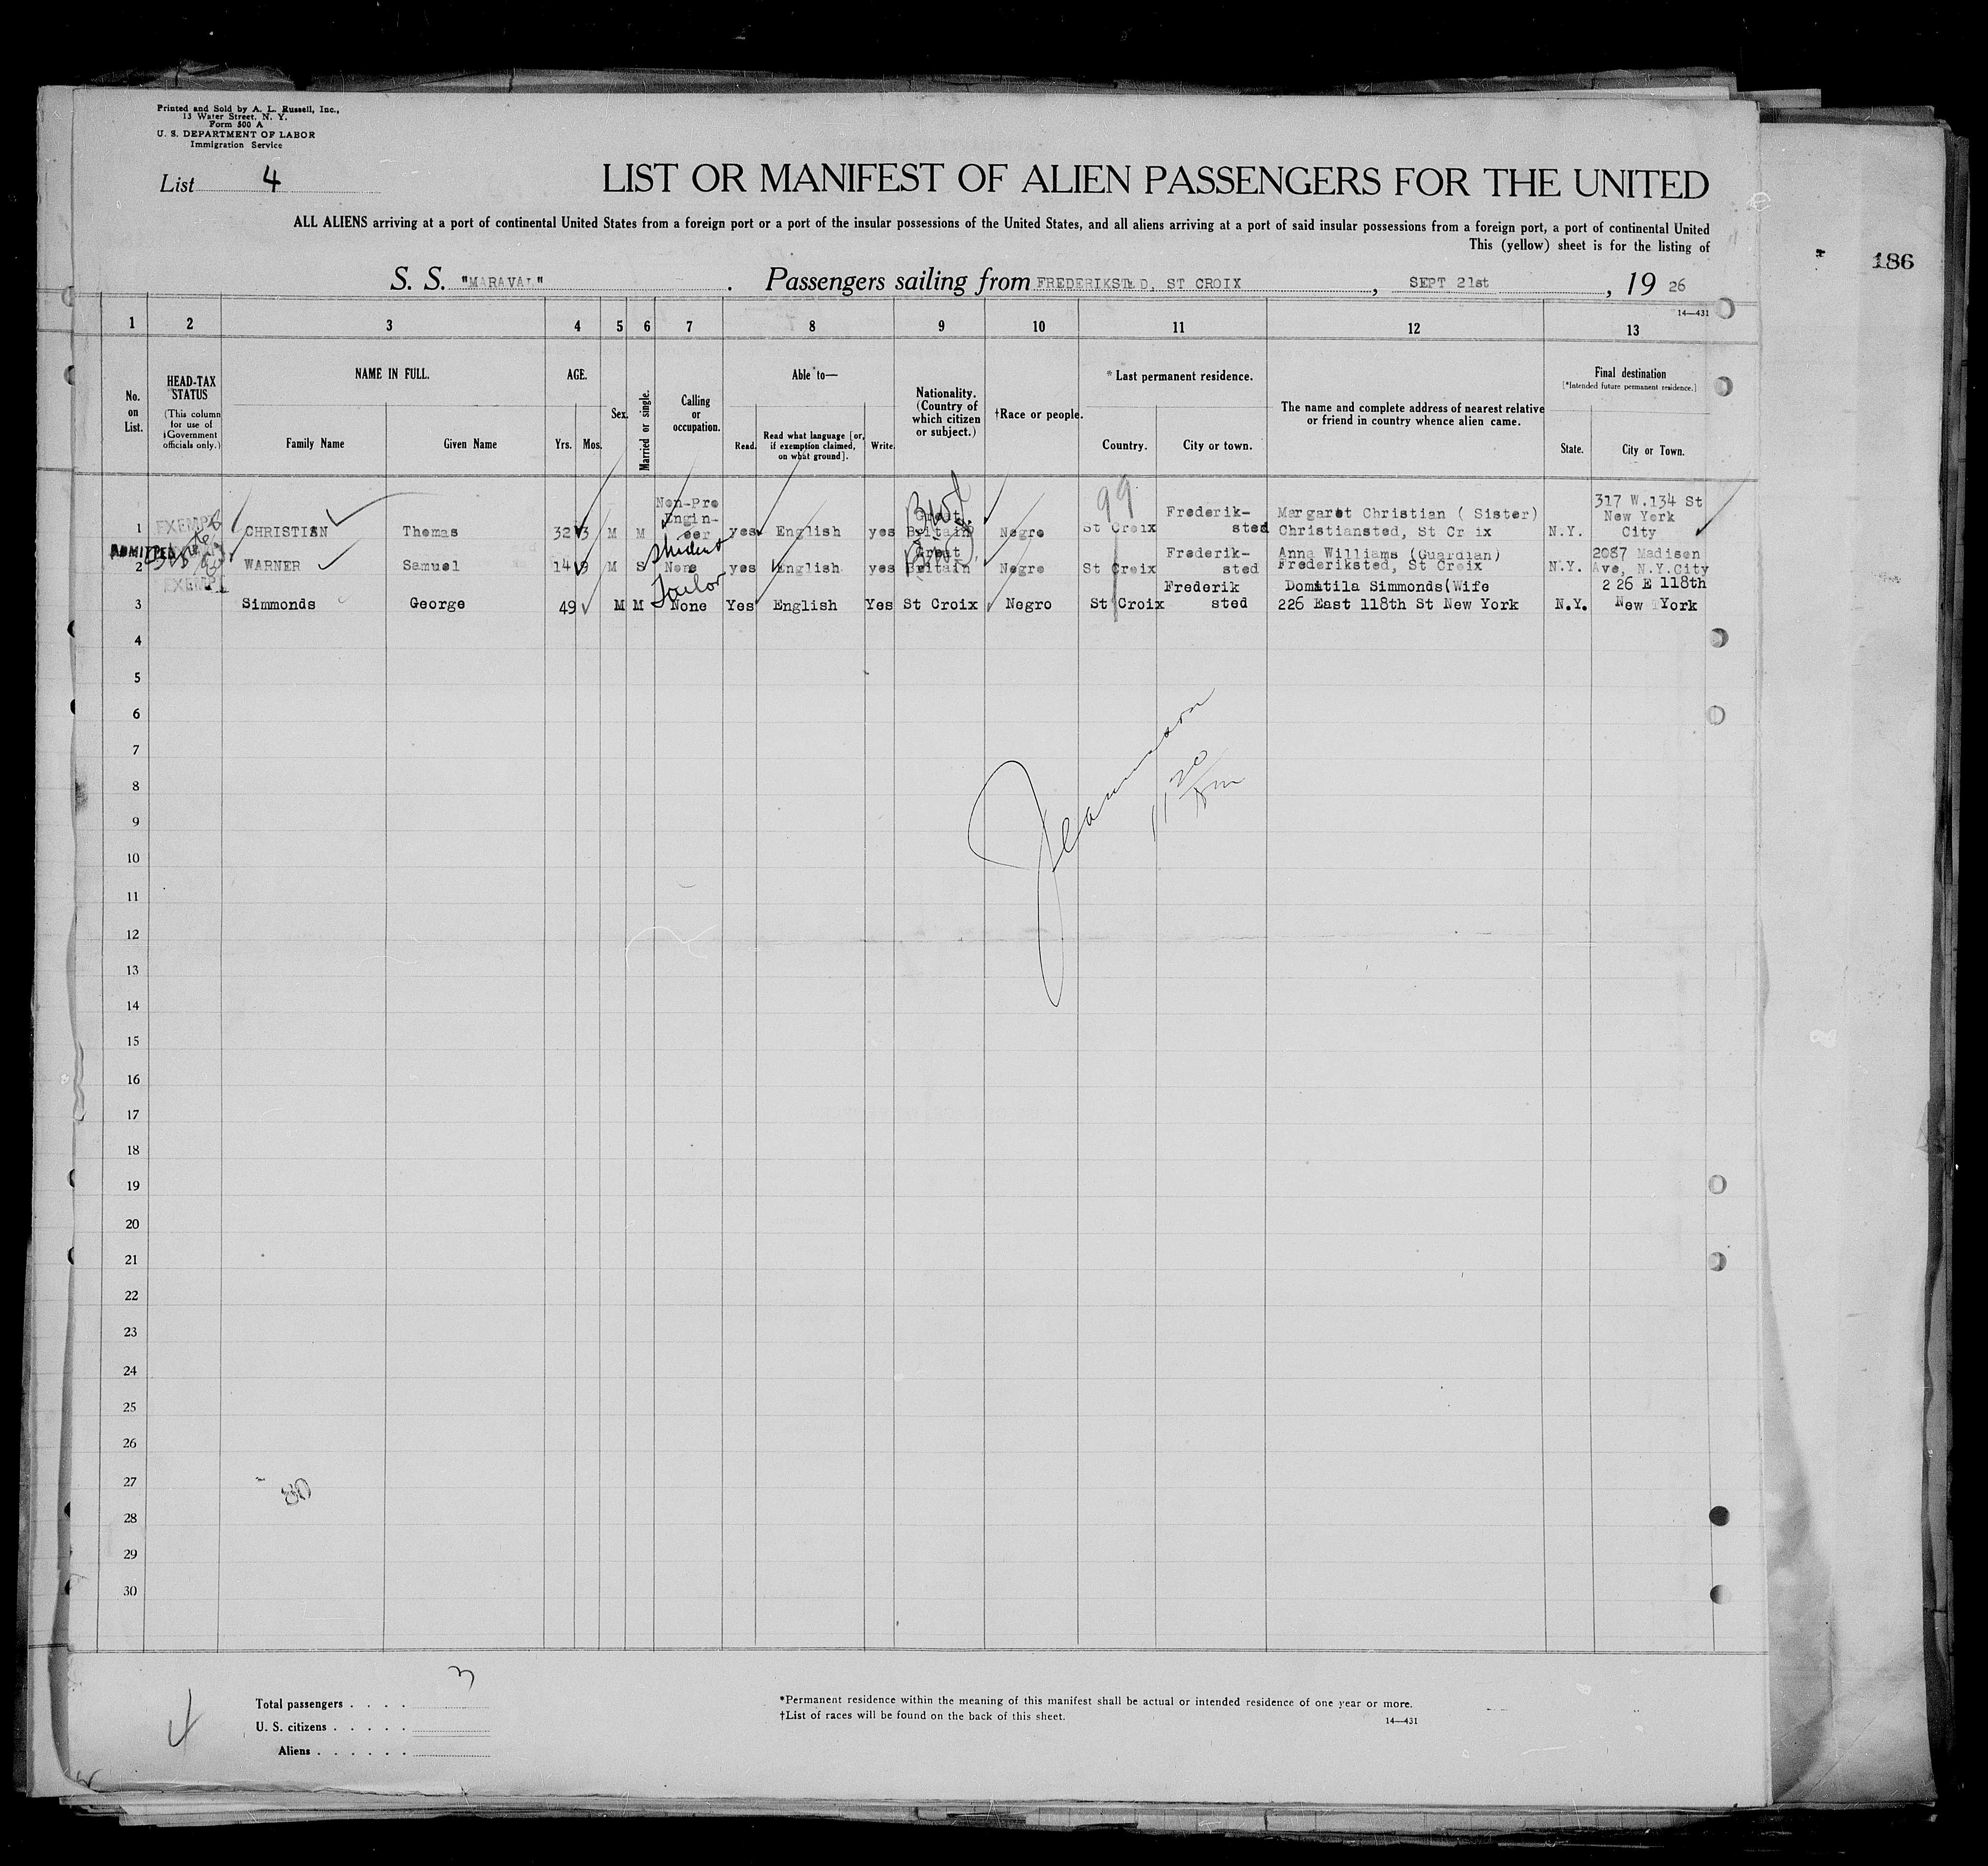 Printed and Sold by A. L. Russell, Inc.,
13 Water Street, N. Y.
Form 500 A
U. S. DEPARTMENT OF LABOR
Immigration Service
List 4
LIST OR MANIFEST OF ALIEN PASSENGERS FOR THE UNITED
ALL ALIENS arriving at a port of continental United States from a foreign port or a port of the insular possessions of the United States, and all aliens arriving at a port of said insular possessions from a foreign port, a port of continental United
This (yellow) sheet is for the listing of
S. S. "MARAVAL" . Passengers sailing from FREDERIKSTED, ST CROIX , SEPT 21st , 19 26
186
14—431
1 2 3 4 5 6 7 8 9 10 11 12 13
No. on List.
HEAD-TAX STATUS
(This column for use of Government officials only.)
NAME IN FULL.
Family Name Given Name
AGE.
Yrs. Mos.
Sex.
Married or single.
Calling or occupation.
Able to—
Read. Read what language [or, if exemption claimed, on what ground]. Write.
Nationality. (Country of which citizen or subject.)
†Race or people.
*Last permanent residence.
Country. City or town.
The name and complete address of nearest relative or friend in country whence alien came.
Final destination
[*Intended future permanent residence.]
State. City or Town.
99
1 EXEMPT CHRISTIAN Thomas 32 3 M M Non-Pro Engin-eer yes English yes Great Britain Negro St Croix Frederik-sted Margaret Christian ( Sister) Christiansted, St Cr ix N.Y. 317 W.134 St New York City
ADMITTED
2 EXEMPT WARNER Samuel 14 9 M S Student None yes English yes Great Britain Negro St Croix Frederik-sted Anna Williams (Guardian) Frederiksted, St Croix N.Y. 2087 Madison Ave, N.Y.City
3 Simmonds George 49 M M Tailor None Yes English Yes St Croix Negro St Croix Frederik sted Domatila Simmonds(Wife 226 East 118th St New York N.Y. 2 26 E 118th New York
4
5
6
7
8
9
10
11
12
13
14
15
16
17
18
19
20
21
22
23
24
25
26
27
28
29
30
11 20
Total passengers . . . . 3
U. S. citizens . . . . .
Aliens . . . . . .
*Permanent residence within the meaning of this manifest shall be actual or intended residence of one year or more.
†List of races will be found on the back of this sheet.
14—431